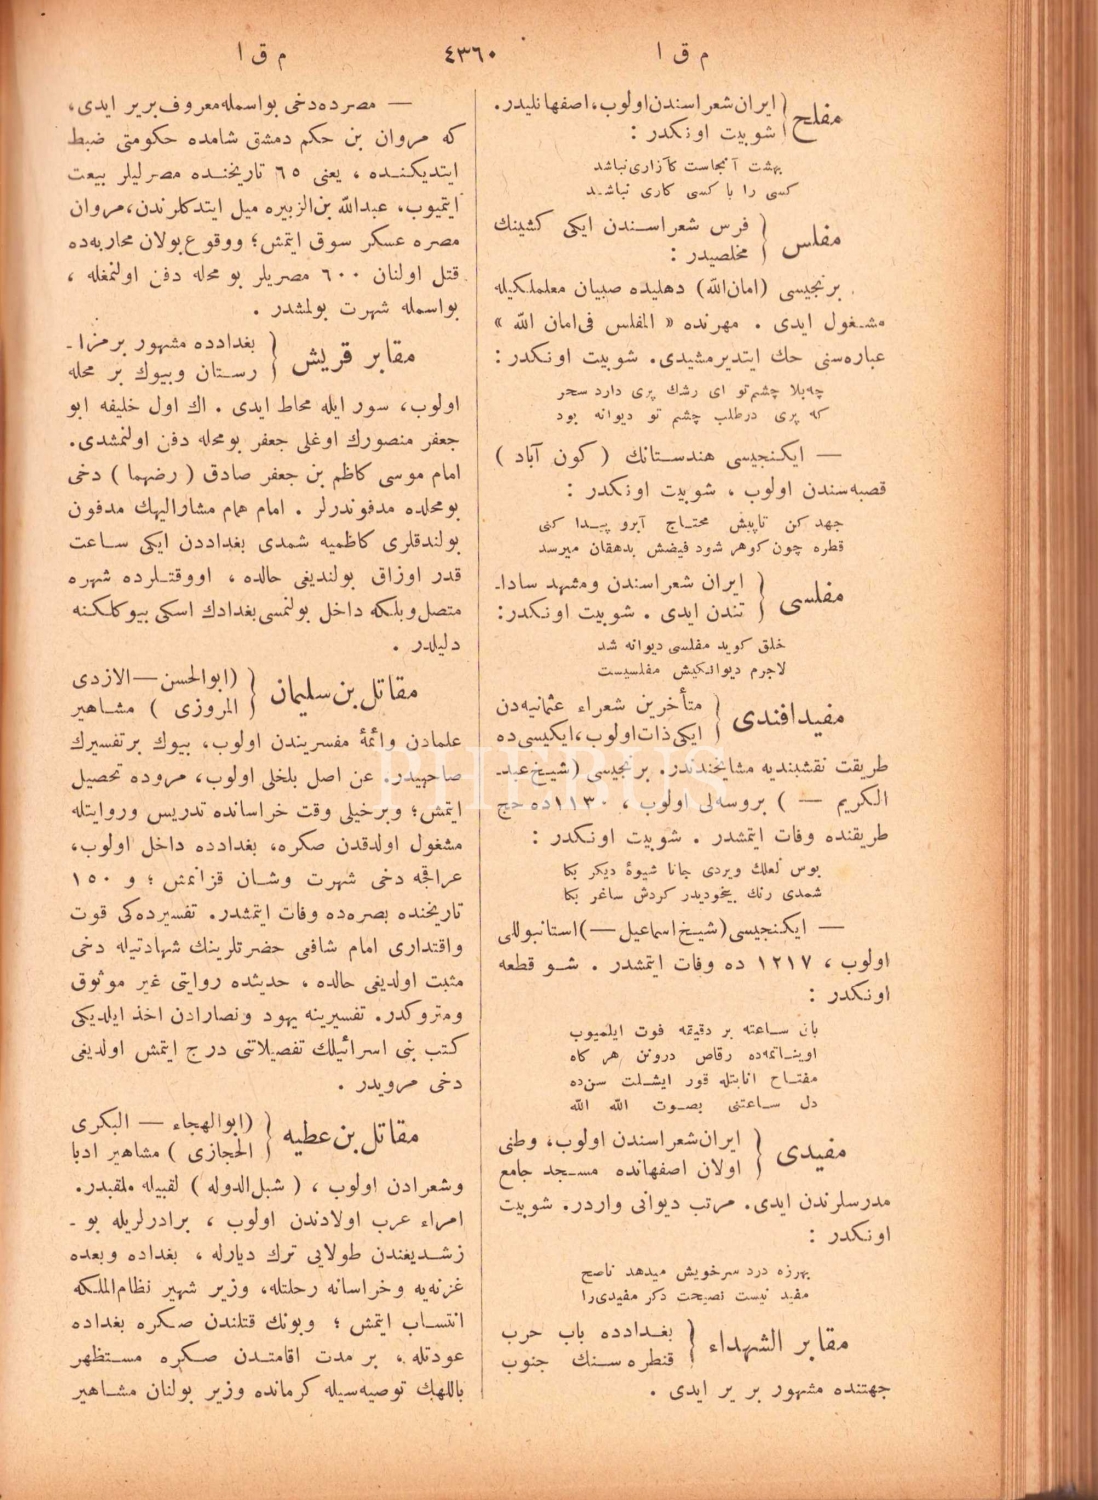 م ق ا
٤٣٦٠
م ق ا
مفلح
ايران شعراسندن اولوب، اصفهانليدر.
شو بيت اونكدر :
بهشت آنجاست كآزارى نباشد
كسى را با كسى كارى نباشد
مفلس
فرس شعراسندن ايكى كشينك
مخلصيدر :
برنجيسى (امان الله) دهليده صبيان معلملكيله
مشغول ايدى . مهرنده « المفلس فى امان الله »
عباره سنى حك ايتديرمشيدى. شو بيت اونكدر :
چه بلا چشم تو اى رشك پرى دارد سحر
كه پرى درطلب چشم تو ديوانه بود
— ايكنجيسى هندستانك ( كون آباد )
قصبه سندن اولوب ، شو بيت اونكدر :
جهد كن تاپيش محتاج آبرو پيدا كنى
قطره چون كوهر شود فيضش بدهقان ميرسد
مفلسى
ايران شعراسندن ومشهد سادا-
تندن ايدى . شو بيت اونكدر:
خلق كويد مفلسى ديوانه شد
لاجرم ديوانكيش مفلسيست
مفيد افندى
متأخرين شعراء عثمانيه دن
ايكى ذات اولوب، ايكيسى ده
طريقت نقشبنديه مشايخندندر. برنجيسى (شيخ عبد-
الكريم — ) بروسه لى اولوب ، ١١٣٠ ده حج
طريقنده وفات ايتمشدر . شو بيت اونكدر :
بوس لعلك ويردى جانا شيوۀ ديكر بكا
شمدى رنك بيخوديدر كردش ساغر بكا
— ايكنجيسى (شيخ اسماعيل —) استانبوللى
اولوب ، ١٢١٧ ده وفات ايتمشدر . شو قطعه
اونكدر :
بان ساعته بر دقيقه فوت ايلميوب
اويناتمه ده رقاص درونن هر كاه
مفتاح انابتله قور ايشلت سن ده
دل ساعتنى بصوت الله الله
مفيدى
ايران شعراسندن اولوب، وطنى
اولان اصفهانده مسجد جامع
مدرسلرندن ايدى. مرتب ديوانى واردر. شو بيت
اونكدر :
بهرزه درد سرخويش ميدهد ناصح
مفيد نيست نصيحت دكر مفيدى را
مقابر الشهداء
بغدادده باب حرب
قنطره سنك جنوب
جهتنده مشهور بر ير ايدى .
— مصرده دخى بواسمله معروف بر ير ايدى،
كه مروان بن حكم دمشق شامده حكومتى ضبط
ايتديكنده ، يعنى ٦٥ تاريخنده مصرليلر بيعت
ايتميوب، عبدالله بن الزبيره ميل ايتدكلرندن، مروان
مصره عسكر سوق ايتمش؛ ووقوع بولان محاربه ده
قتل اولنان ٦٠٠ مصريلر بو محله دفن اولنمغله ،
بواسمله شهرت بولمشدر .
مقابر قريش
بغدادده مشهور بر مزا-
رستان وبيوك بر محله
اولوب، سور ايله محاط ايدى . اك اول خليفه ابو
جعفر منصورك اوغلى جعفر بومحله دفن اولنمشدى.
امام موسى كاظم بن جعفر صادق ( رضهما ) دخى
بومحلده مدفوندرلر . امام همام مشاراليهك مدفون
بولندقلرى كاظميه شمدى بغداددن ايكى ساعت
قدر اوزاق بولنديغى حالده ، اووقتلرده شهره
متصل وبلكه داخل بولنمسى بغدادك اسكى بيوكلكنه
دليلدر .
مقاتل بن سليمان
(ابوالحسن — الازدى
المروزى ) مشاهير
علمادن وائمۀ مفسريندن اولوب، بيوك بر تفسيرك
صاحبيدر. عن اصل بلخلى اولوب، مروده تحصيل
ايتمش؛ وبرخيلى وقت خراسانده تدريس وروايتله
مشغول اولدقدن صكره، بغدادده داخل اولوب،
عراقجه دخى شهرت وشان قزانمش ؛ و ١٥٠
تاريخنده بصره ده وفات ايتمشدر. تفسيرده كى قوت
واقتدارى امام شافعى حضرتلرينك شهادتيله دخى
مثبت اولديغى حالده ، حديثده روايتى غير موثوق
ومتروكدر. تفسيرينه يهود ونصارادن اخذ ايلديكى
كتب بنى اسرائيلك تفصيلاتنى درج ايتمش اولديغى
دخى مرويدر .
مقاتل بن عطيه
(ابوالهجاء — البكرى
الحجازى ) مشاهير ادبا
وشعرادن اولوب ، ( شبل الدوله ) لقبيله ملقبدر.
امراء عرب اولادندن اولوب ، برادرلريله بو -
زشديغندن طولايى ترك ديارله ، بغداده وبعده
غزنه يه وخراسانه رحلتله، وزير شهير نظام الملكه
انتساب ايتمش ؛ وبونك قتلندن صكره بغداده
عودتله ، بر مدت اقامتدن صكره مستظهر
باللهك توصيه سيله كرمانده وزير بولنان مشاهير
PHEBUS